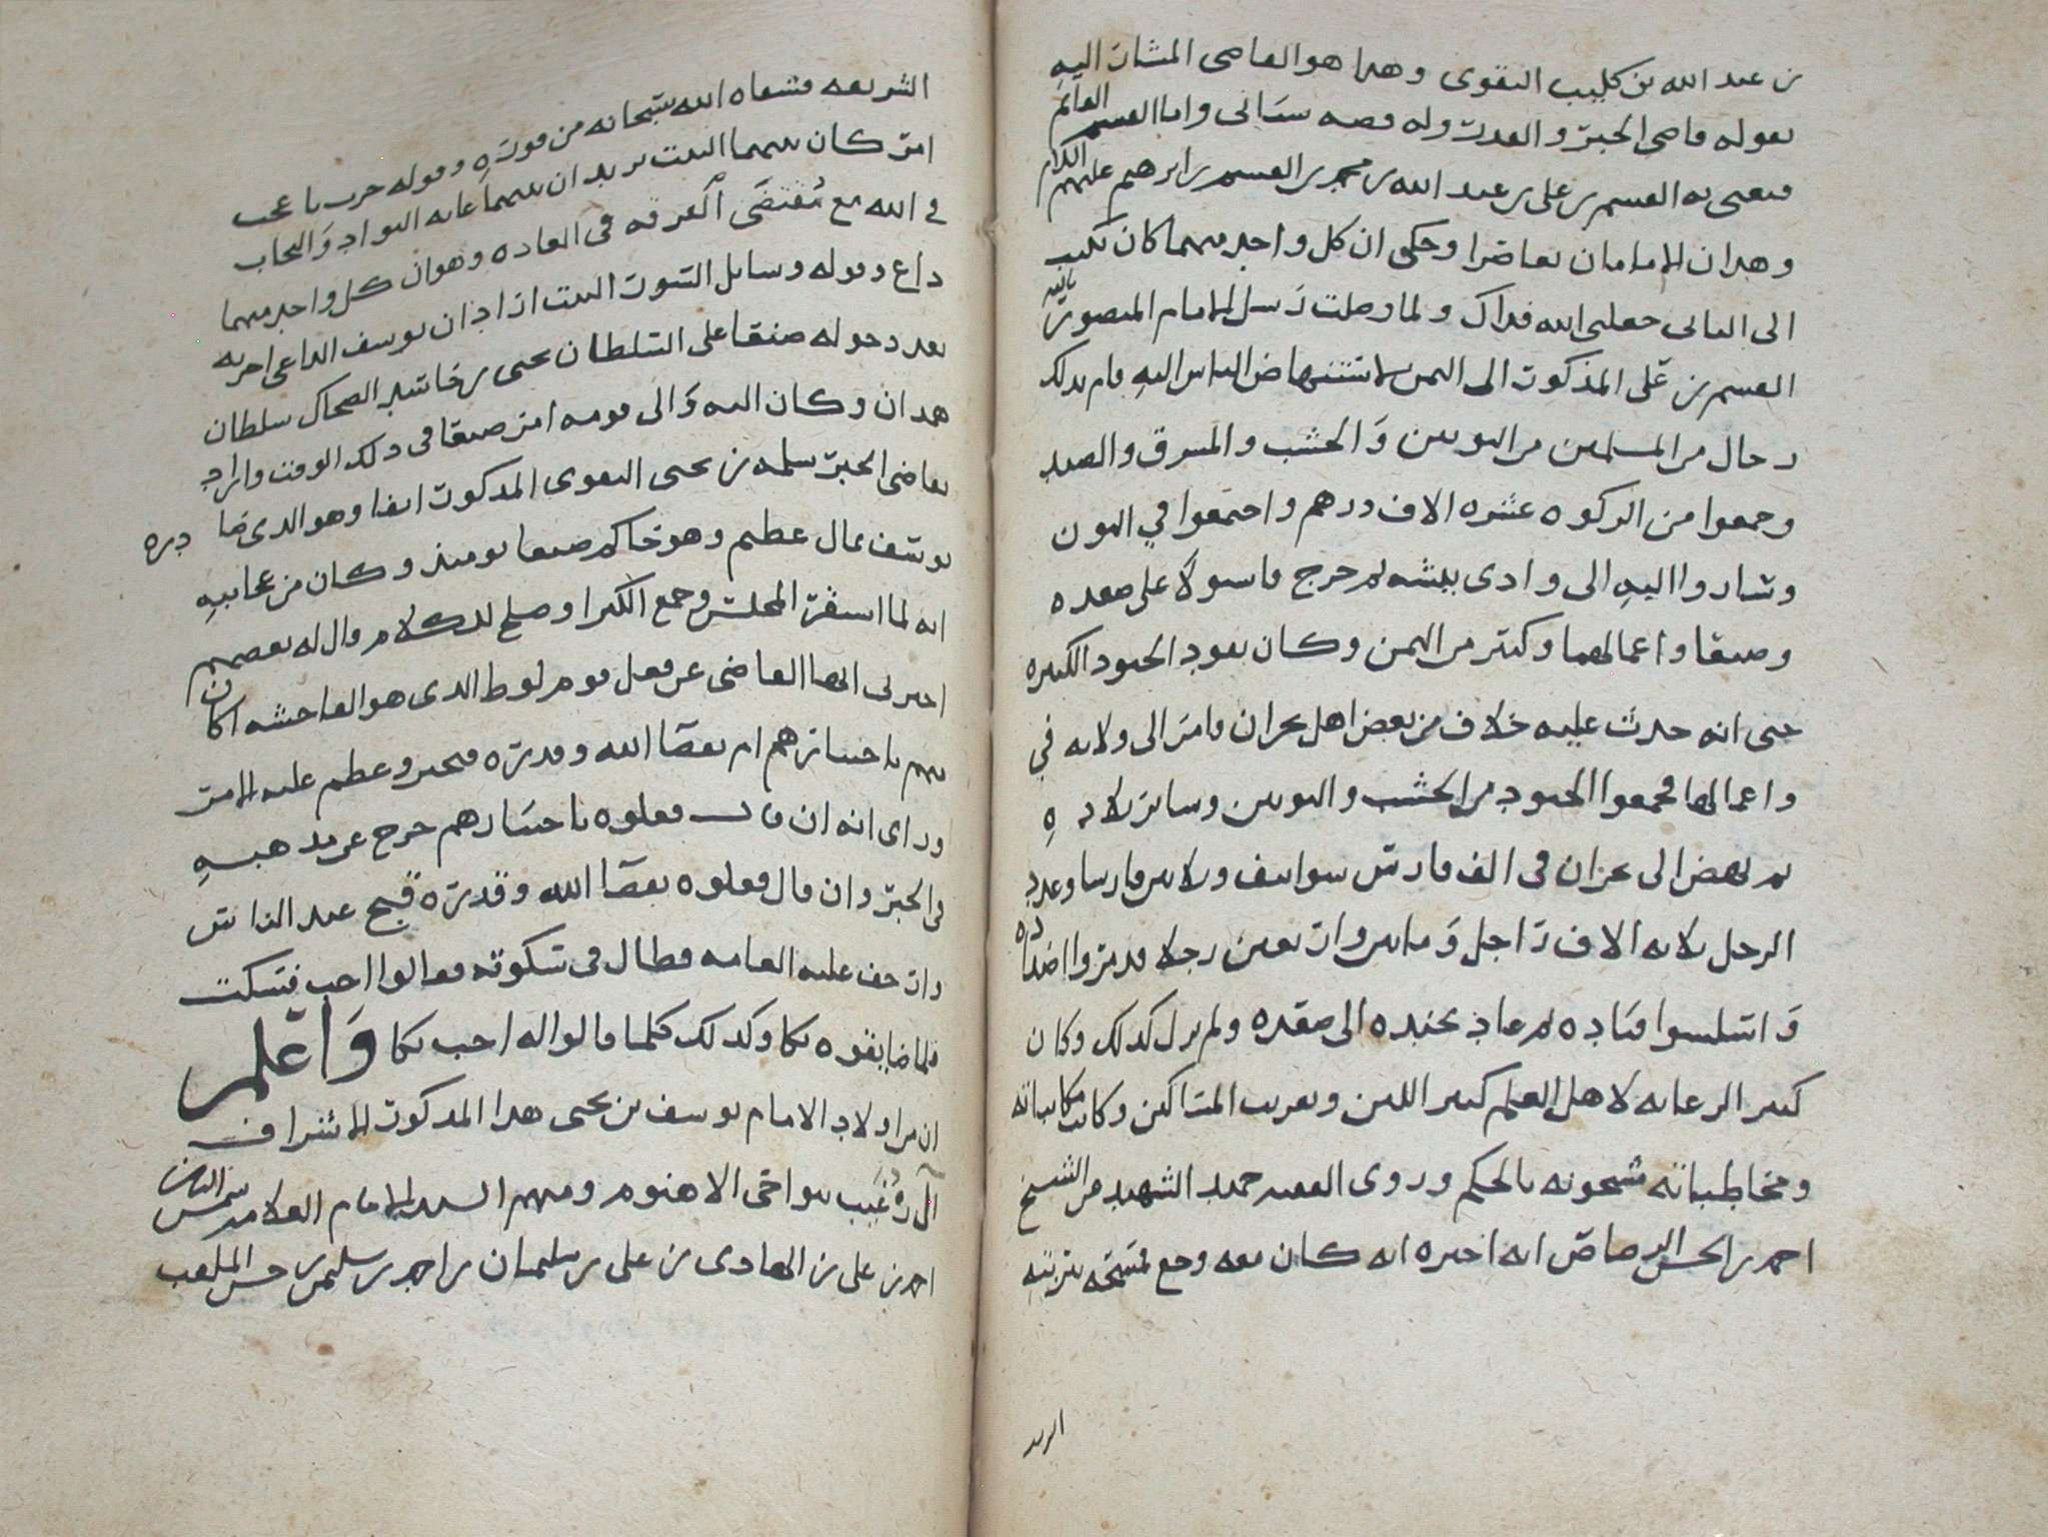 بن عبد الله بن كليب النقوى وهذا هو القاضى المشار اليه
بقوله قاضى الجبر والقدر وله قصه ستاتى واما القسم العالم
فيعنى به القسم بن على بن عبد الله بن محمد بن القسم بن ابرهيم عليهم السلام
وهذان الامامان تعاصرا وحكى ان كل واحد منهما كان يكتب
الى الثانى جعلنى الله فداك ولما وصلت رسل الامام المنصور بالله
القسم بن على المذكور الى اليمن لاستنهاض الناس اليه قام بذلك
رجال من المسلمين من البونين والخشب والمشرق والصيد
وجمعوا من الزكوه عشره الاف درهم واجتمعوا في البون
وساروا اليه الى وادى بيشه ثم خرج فاستولا على صعده
وصنعا واعمالهما وكثير من اليمن وكان يقود الجنود الكثيره
حتى انه حدث عليه خلاف من بعض اهل نجران فامر الى ولاته في
واعمالها فجمعوا الجنود من الخشب والبونين وسائر بلاده
ثم نهض الى نجران فى الف فارس وثلاثين فارسا وعدد
الرجل ثلاثه الاف راجل وماتين واربعين رجلا فدمروا اضداده
ثم عاد بجنده الى صعده ولم يزل كذلك وكان
كثير الرعايه لاهل العلم كثير اللين وتقريب المساكين وكانت مكاتباته
ومخاطباته مشحونه بالحكم وروى الفقيه حميد الشهيد عن الشيخ
احمد بن الحسن الرصاص انه اخبره انه كان معه وجع فمسحه بتربته
الشريفه فشفاه الله سبحانه من فوره وقوله حرب يا عجب
امر كان بينهما البيت يريد ان بينهما غايه التواد والتحاب
في الله مع مقتضى الفرقه فى العاده وهو ان كل واحد منهما
داع وقوله وسايل السور البيت اراد ان يوسف الداعى اخربه
بعد دخوله صنعا على السلطان يحيى بن ابى حاشد بن الضحاك سلطان
همدان وكان اليه والى قومه امر صنعا فى ذلك الوقت واراد
بقاضى الجبر سلمه بن يحيى النقوى المذكور انفا وهو الذى ضادره
يوسف بمال عظيم وهو حاكم صنعا يوميذ وكان من عجايبه
انه لما استقر المجلس وجمع الكبرا وصلح للكلام قال له بعضهم
اخبرنى ايها القاضى عن فعل قوم لوط الذى هو الفاحشه اكان
منهم باختيارهم ام بقضا الله وقدره فتحير وعظم عليه الامر
وراى انه ان قال فعلوه باختيارهم خرج عن مذهبه
فى الجبر وان قال فعلوه بقضا الله وقدره قبح عند الناس
وارتجف عليه العامه فطال فى سكوته فقالوا اجب فسكت
فلما ضايقوه بكا وكذلك كلما قالوا له اجب بكا واعلم
ان من اولاد الامام يوسف بن يحيى هذا المذكور الاشراف
آل بنواحى الاهنوم ومنهم السيد الامام العلامه شمس الدين
احمد بن على بن الهادى بن على بن سليمان بن احمد بن سليمن بن حسن الملقب
الشريفه